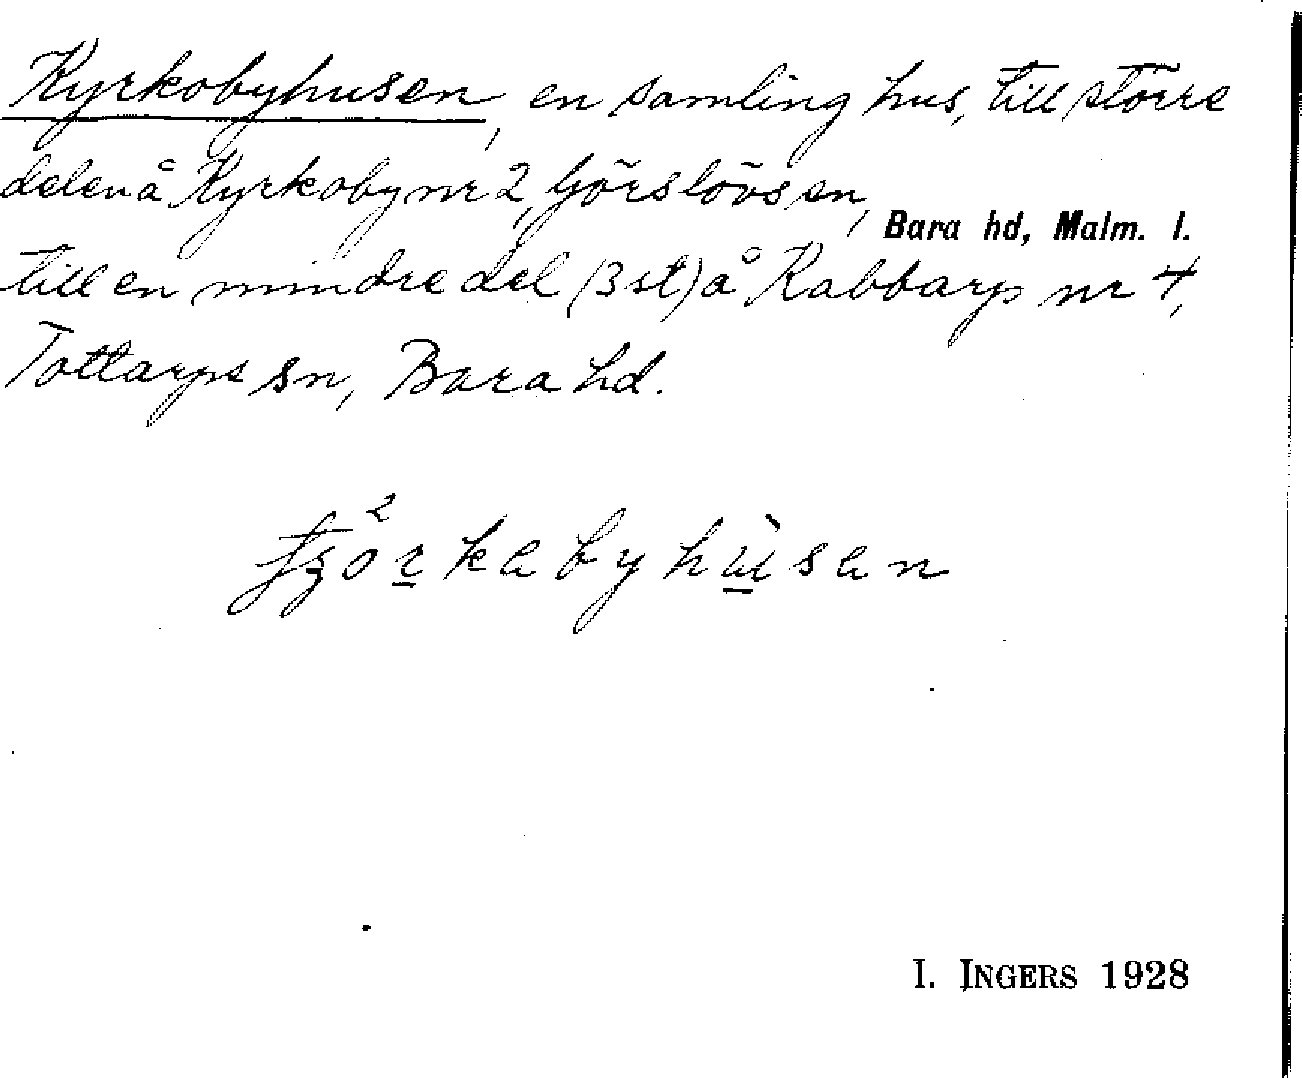 Kyrkobyhusen, en samling hus, till större
delen å Kyrkoby nr 2, Görslövs sn,
Bara hd, Malm. l.
till en mindre del (3 st) å Kabbarp nr 4,
Tottarps sn, Bara hd.
I. INGERS 1928